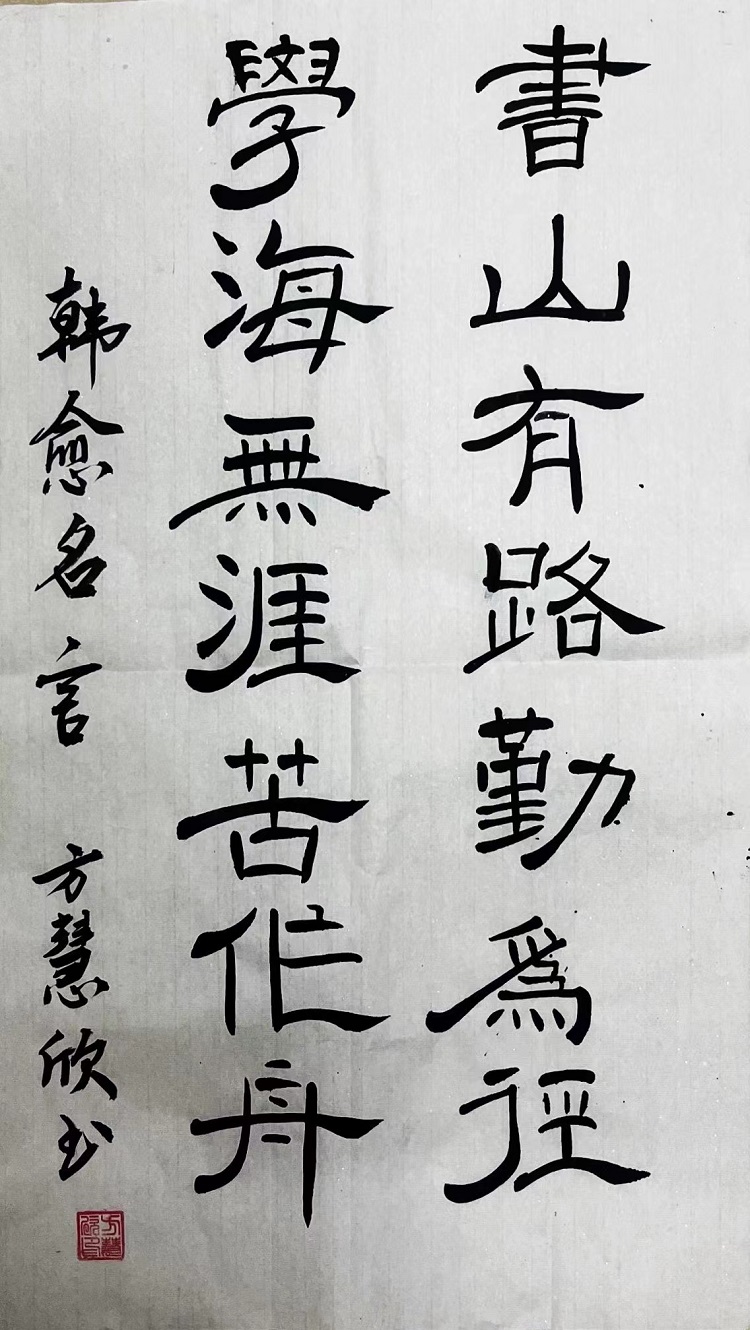 書山有路勤為徑
學海無涯苦作舟
韩愈名言 方慧欣书